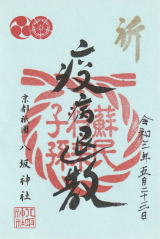 祈
疫病退散
蘇民
子孫
京都祇園 八坂神社
令和三年五月二十三日